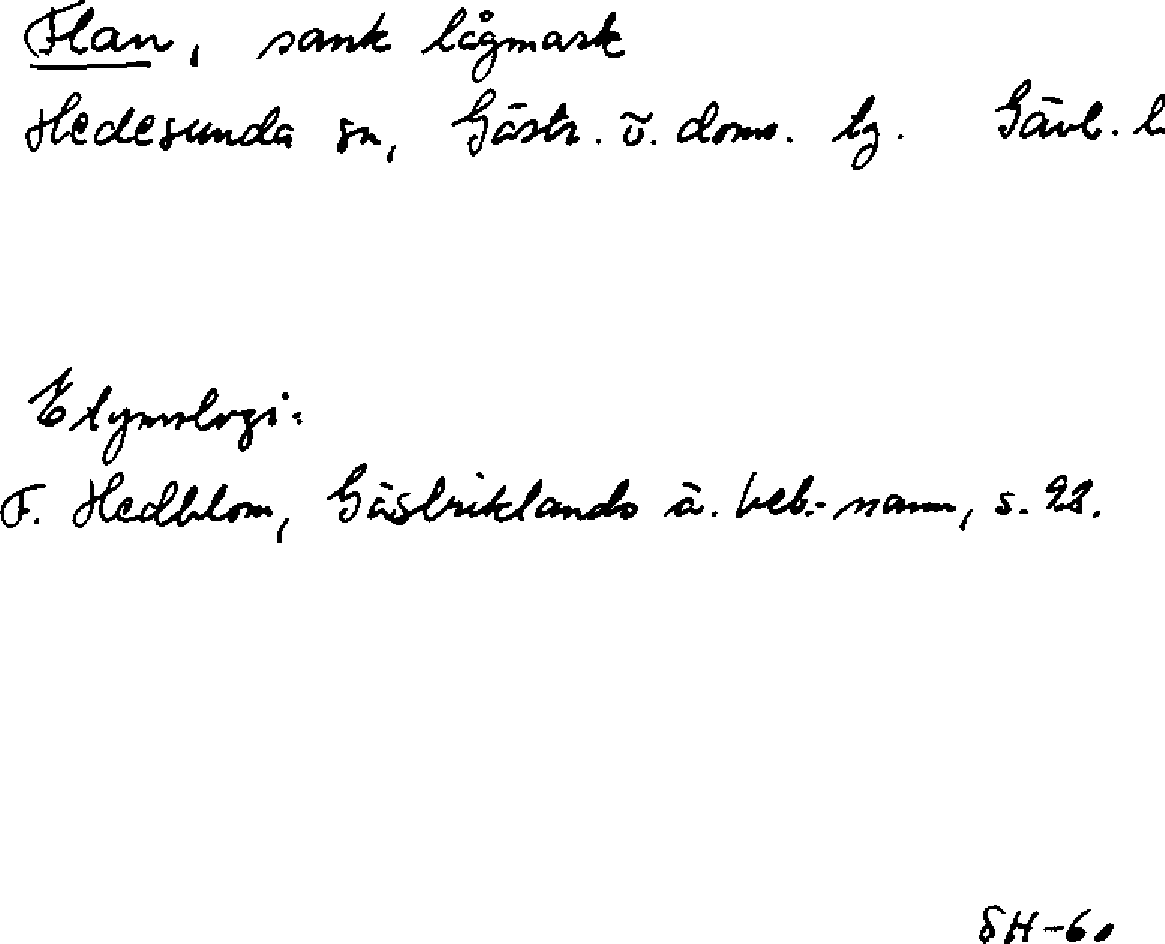 Flan, sank lågmark
Hedesunda sn, Gästr. ö. doms. lg. Gävl. l
Etymologi:
F. Hedblom, Gästriklands ä. beb.-namn, s. 98.
SH-60